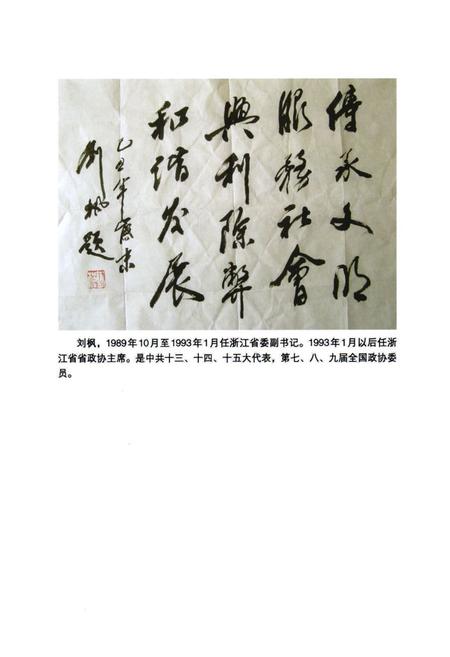 傳承文明
服務社會
興利除弊
和谐发展
己丑年
刘枫题
刘枫，1989年10月至1993年1月任浙江省委副书记。1993年1月以后任浙
江省省政协主席。是中共十三、十四、十五大代表，第七、八、九届全国政协委
员。